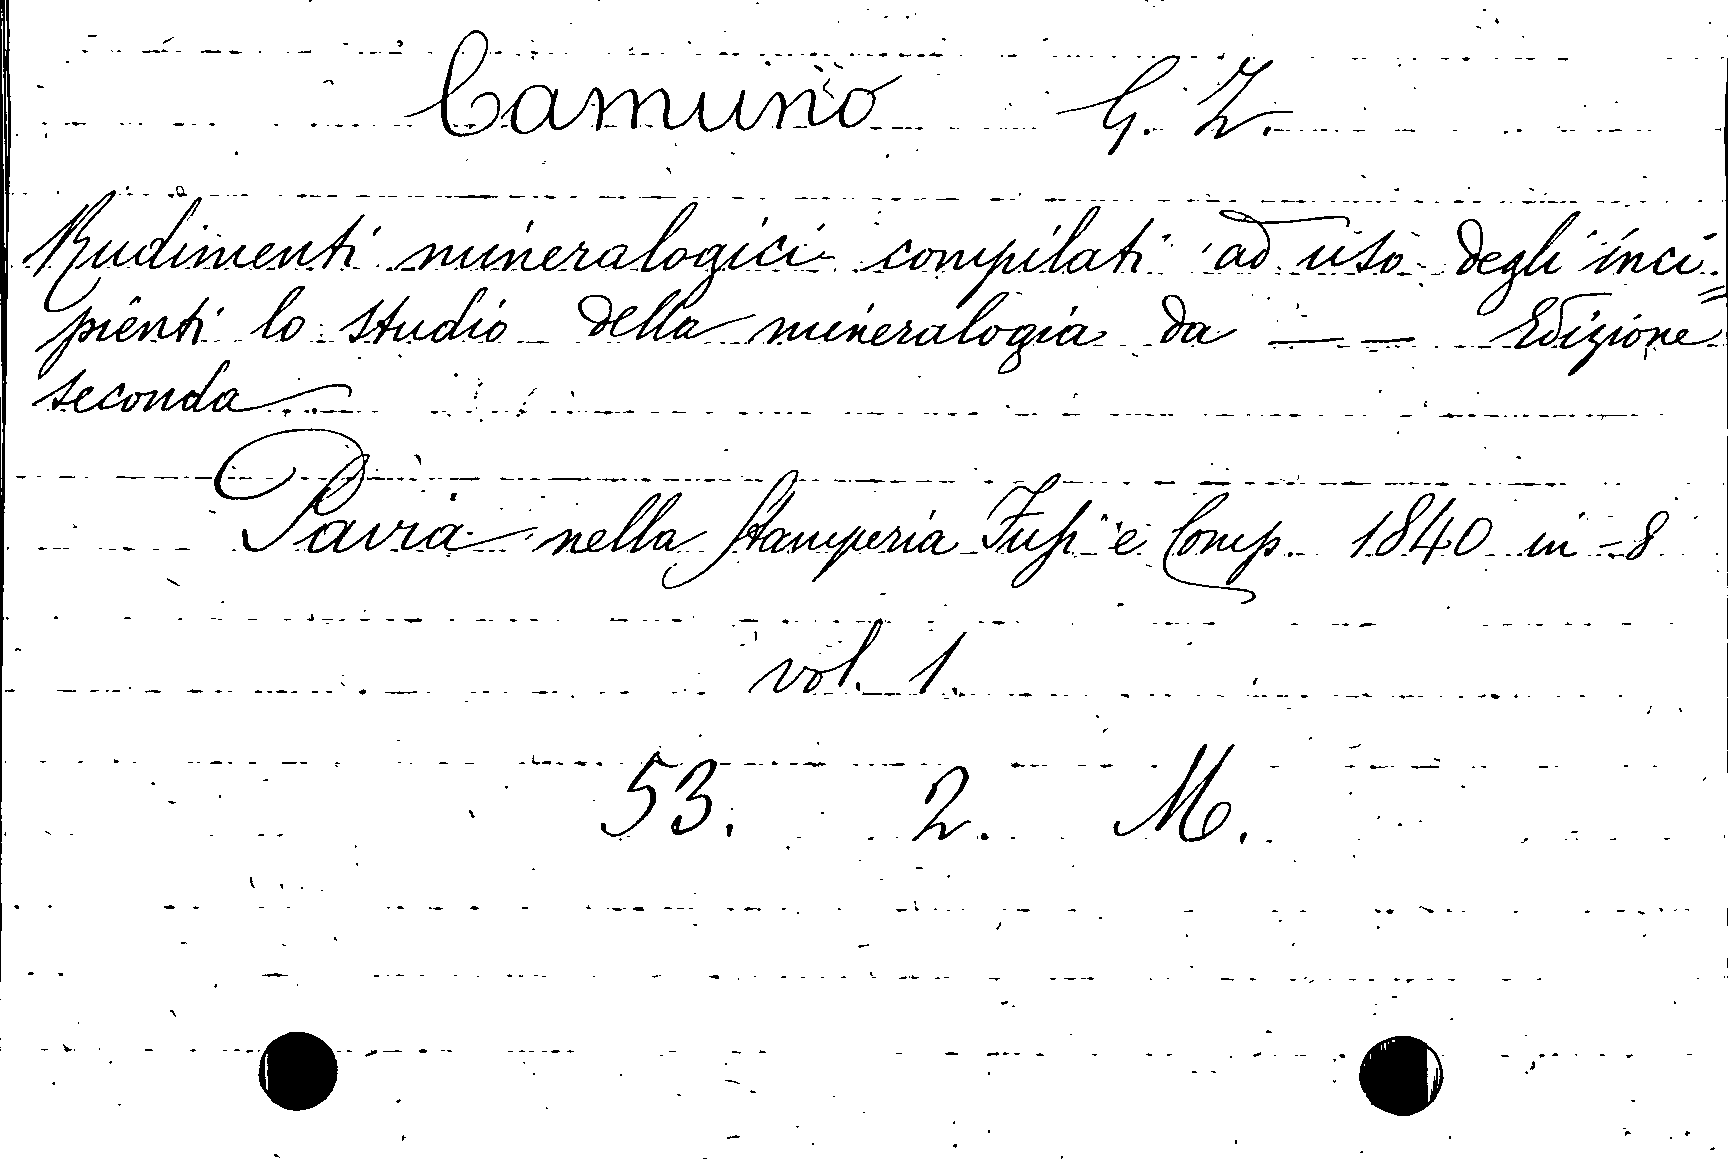 Camuno G. Z.
Rudimenti mineralogici compilati ad uso degli inci=
pienti lo studio della mineralogia da — — Edizione
seconda
Pavia nella Stamperia Fusi e Comp. 1840 in-8
vol. 1.
53. 2. M.